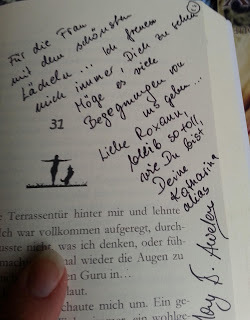 Für die Frau
mit dem schönsten
Lächeln... Ich freue
mich immer, Dich zu sehen
Möge es viele
Begegnungen von
uns geben...
Liebe Roxann,
bleib so toll,
wie Du bist
Deine
Katharina
alias
31
e Terrassentür hinter mir und lehnte
ch war vollkommen aufgeregt, durch-
usste nicht, was ich denken, oder füh-
mach mal wieder die Augen zu
en Guru in...
laut.
chaute mich um. Ein ge-